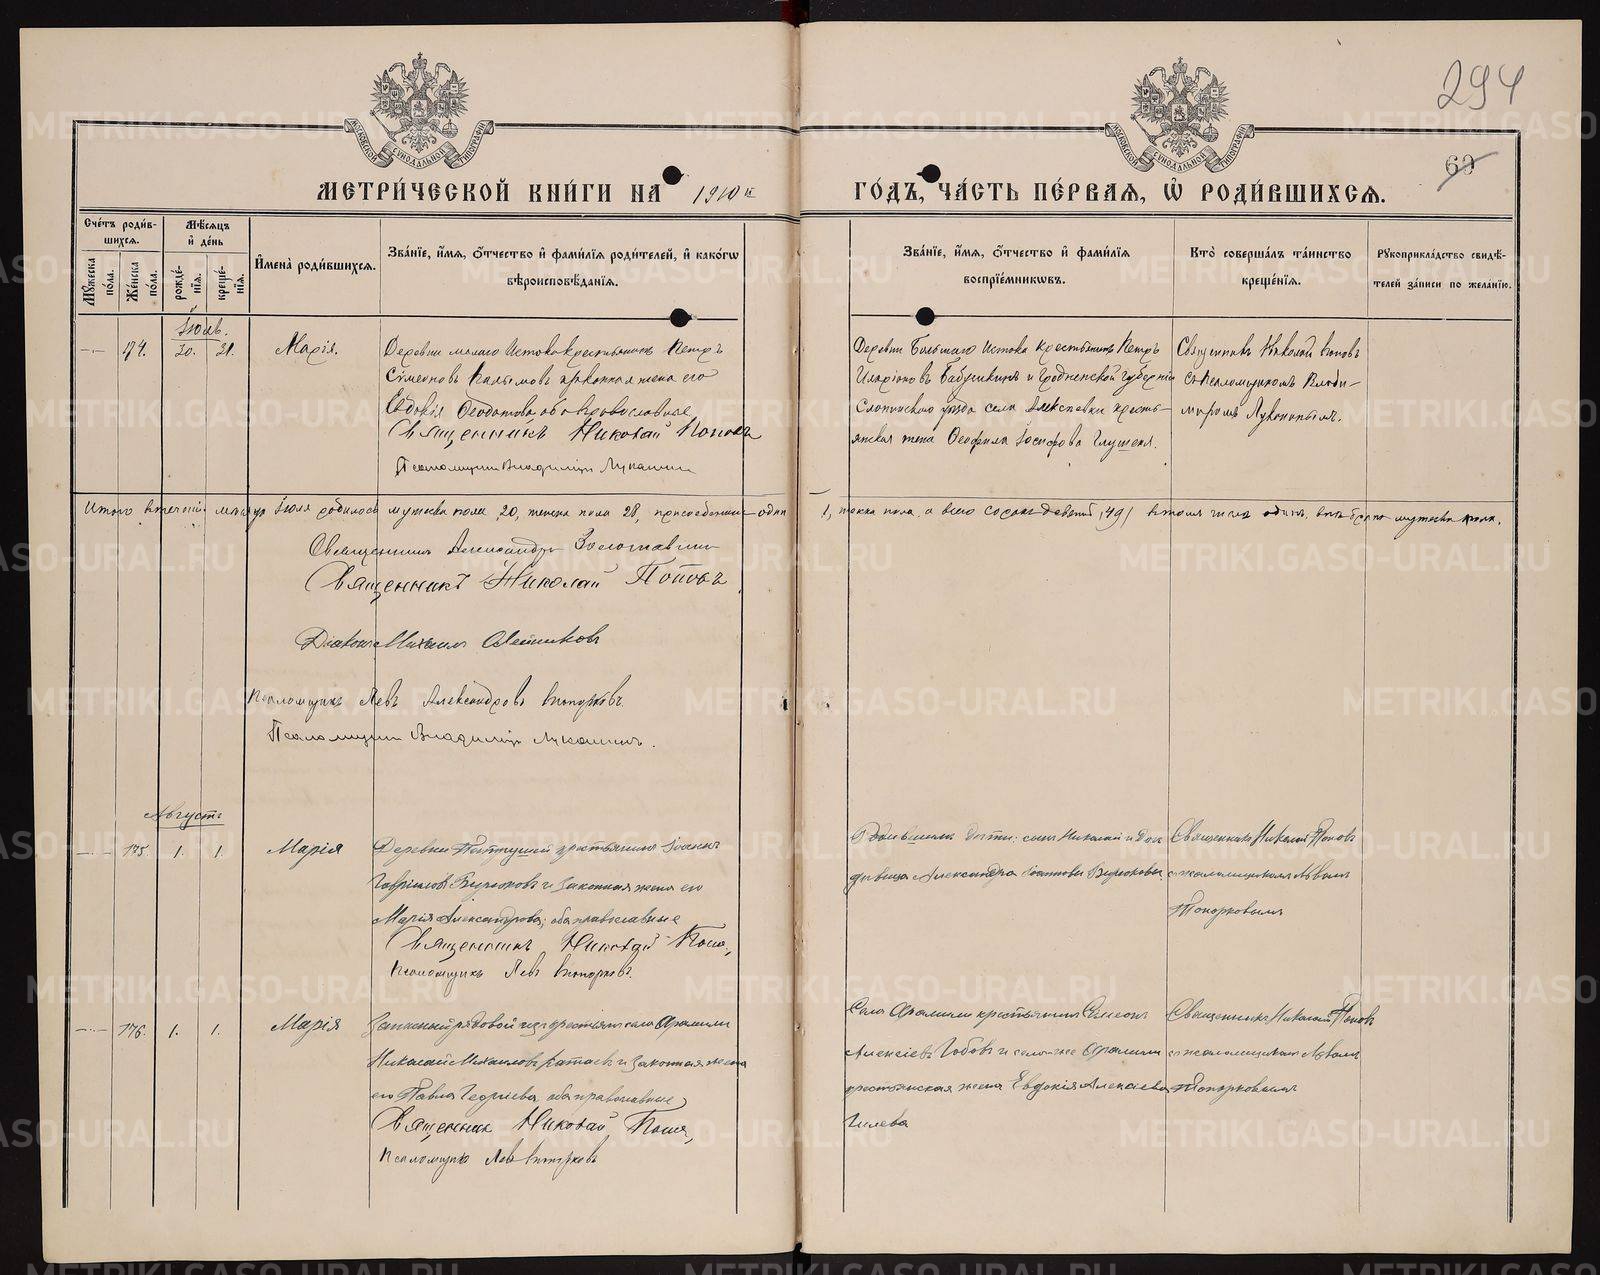 294
69
МОСКОВСКОЙ СѴНОДАЛЬНОЙ ТИПОГРАФІИ
МОСКОВСКОЙ СѴНОДАЛЬНОЙ ТИПОГРАФІИ
МЕТРИ́ЧЕСКОЙ КНИ́ГИ НА 1910 й
ГО́ДЪ, ЧА́СТЬ ПЕ́РВАЯ, Ѡ҆ РОДИ́ВШИХСЯ.
Сче́тъ роди́в-
шихся.
Мꙋ́жеска по́ла.
Же́нска по́ла.
Мѣ́сяцъ
и҆ де́нь
рожде́-
нїя.
креще́-
нїя.
И҆мена̀ роди́вшихся.
Зва́нїе, и҆́мя, ѻ҆́тчество и҆ фами́лїя роди́телей, и҆ како́гѡ
вѣроисповѣ́данїя.
Зва́нїе, и҆́мя, ѻ҆́тчество и҆ фами́лїя
воспрїе́мникѡвъ.
Кто̀ соверша́лъ та́инство
креще́нїя.
Рꙋкоприкла́дство свидѣ́-
телей за́писи по жела́нїю.
Іюль.
174. 20. 21. Марія.
Деревни малаго Истока крестьянинъ Петръ
Сѵмеоновъ законная жена его
Евдокія Ѳеодотова оба православные
Священникъ Николай Поповъ
Псаломщикъ Владимиръ Лукашинъ
Деревни Большаго Истока крестьянинъ Петръ
Иларіоновъ Бабушкинъ и Гродненской губерніи
Слонимскаго уѣзда села Алексѣевки кресть-
янская жена Іосифова
Священникъ Николай Поповъ
съ псаломщикомъ Влади-
миромъ Лукашинымъ.
Итого въ теченіи мѣсяца Іюля родилось мужеска пола 20, женска пола 28, присоединенъ одинъ
1, женска пола, а всего сорокъ девять /49/ въ томъ числѣ одинъ мужеска пола.
Священникъ Александръ Золотавинъ
Священникъ Николай Поповъ
Діаконъ Михаилъ
Псаломщикъ Левъ Александровъ Топорковъ.
Псаломщикъ Владимиръ Лукашинъ.
Августъ
175. 1. 1. Марія
Деревни крестьянинъ Іоаннъ
Гавріиловъ Бирюковъ и законная жена его
Марія Александрова; оба православные
Священникъ Николай Поповъ,
Псаломщикъ Левъ Топорковъ.
Родившихъ дѣти: сынъ Николай и дочь
дѣвица Александра Іоанновы Бирюковы
Священникъ Николай Поповъ
съ псаломщикомъ Львомъ
Топорковымъ
176. 1. 1. Марія
Запасный рядовой изъ крестьянъ села Арамили
Николай Михаиловъ Катаевъ и законная жена
его Павла Георгіева, оба православные
Священникъ Николай Поповъ,
Псаломщикъ Левъ Топорковъ
Села Арамили крестьянинъ Симеонъ
Алексіевъ и села же Арамили
крестьянская жена Евдокія Алексіева
Гилева
Священникъ Николай Поповъ
съ псаломщикомъ Львомъ
Топорковымъ
METRIKI.GASO-URAL.RU